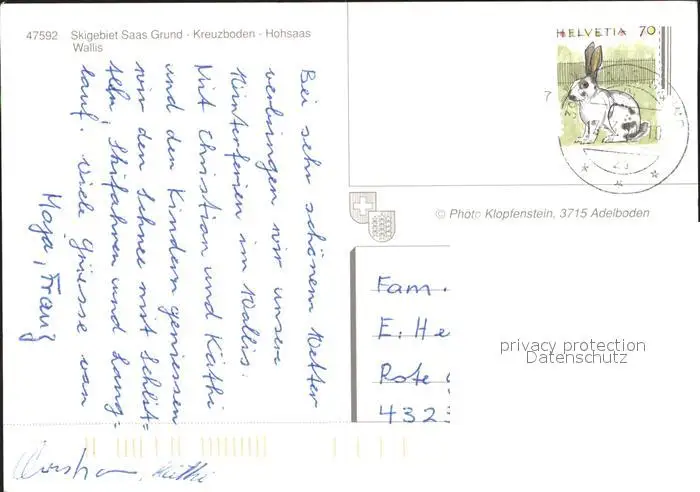 47592 Skigebiet Saas Grund - Kreuzboden - Hohsaas
Wallis
HELVETIA 70
© Photo Klopfenstein, 3715 Adelboden
Bei sehr schönem Wetter
verbringen wir unsere
Winterferien im Wallis.
Mit Christian und Käthi
und den Kindern geniessen
wir den Schnee mit Schlit=
teln, Skifahren und Lang=
lauf. Viele Grüsse von
Maja, Franz
Christian, Käthi
Fam.
E. He
Rote
4323
privacy protection
Datenschutz